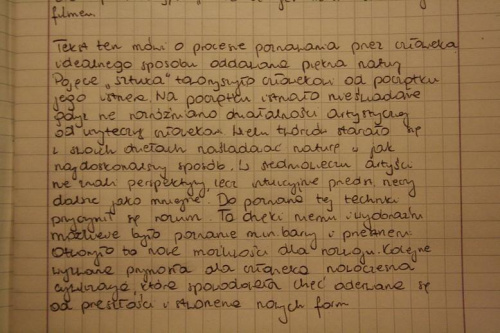 filmem.
Tekst ten mówi o procesie poznawania przez człowieka
idealnego sposobu oddawania piękna natury
Pojęcie „sztuka" towarzyszyło człowiekowi od początku
jego istnienia. Na początku istniało nieświadomie
gdyż nie rozróżniano działalności artystycznej
od użytecznej człowiekowi. Wielu twórców starało się
w swoich dziełach naśladować naturę w jak
najdoskonalszy sposób. W średniowieczu artyści
nie znali perspektywy, lecz intuicyjnie przedm. rzeczy
dalsze jako mniejsze. Do poznania tej techniki
przyczynił się rozum. To dzięki niemu i wyobraźni
możliwe było poznanie m.in. barwy i przestrzeni
Otworzyło to nowe możliwości dla rozwoju. Kolejne
wyzwanie przyniosła dla człowieka nowoczesna
cywilizacja, które spowodowała chęć oderwania się
od przeszłości i stworzenie nowych form